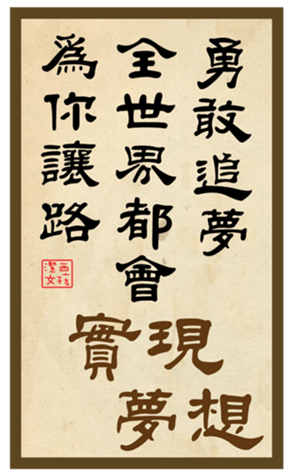 勇敢追夢
全世界都會
爲你讓路
實現
夢想